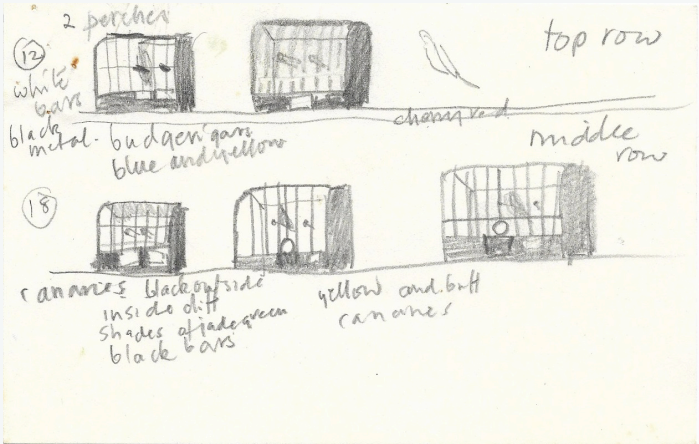 2 perches
12
top row
white
bars
black
metal. budgerigars
blue and yellow
cherry red
middle
row
18
canaries black outside
inside diff
shades of jade green
black bars
yellow and buff
canaries